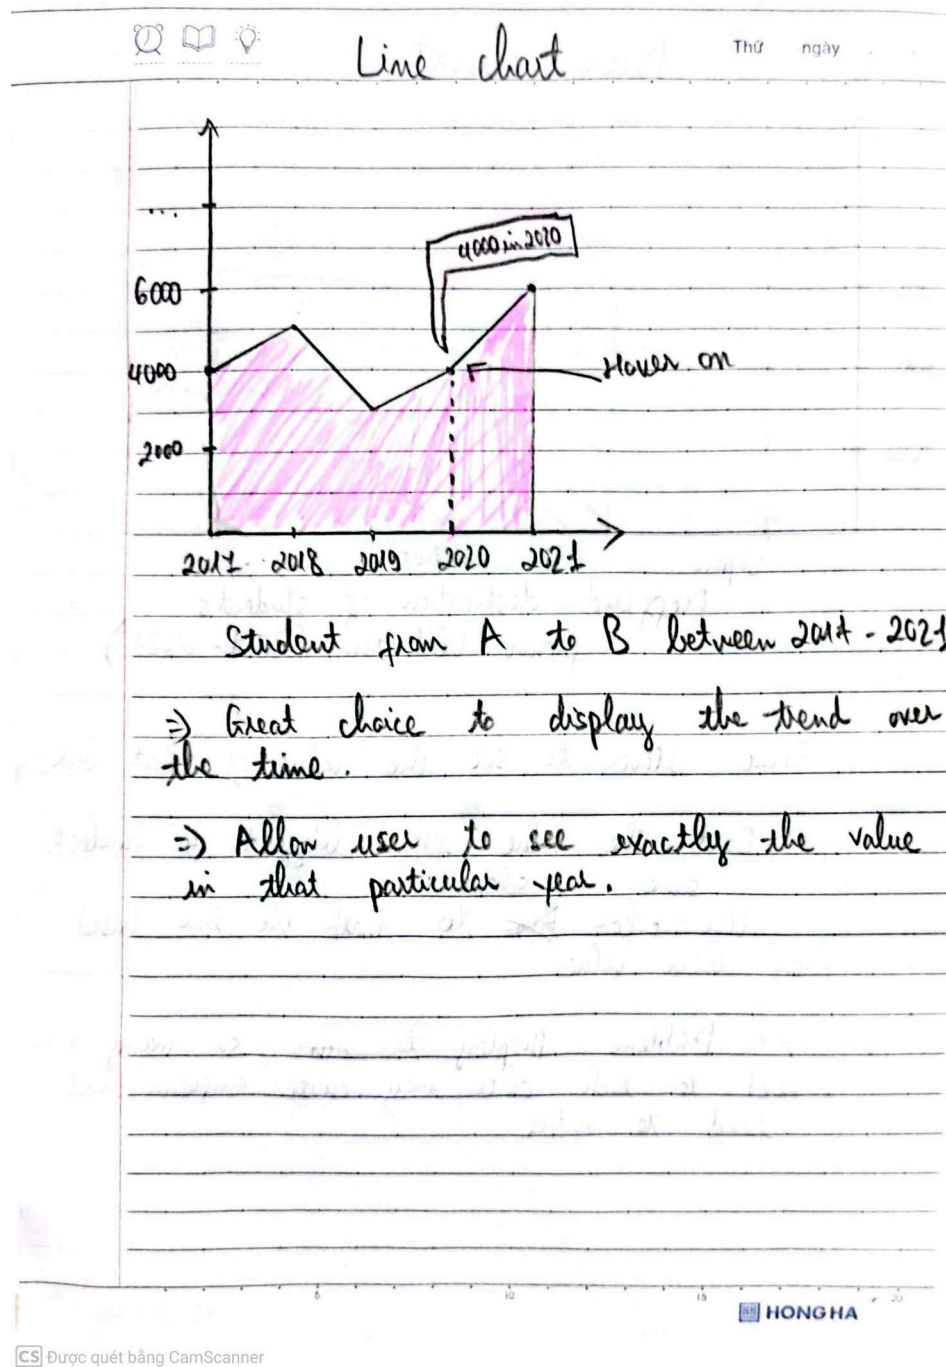 Line chart
Thứ ngày
...
6000
4000
2000
4000 in 2020
Hover on
2017 2018 2019 2020 2021
Student from A to B between 2017 - 2021
=> Great choice to display the trend over
the time.
=> Allow user to see exactly the value
in that particular year.
5 10 15 20
HH HONG HA
CS Được quét bằng CamScanner